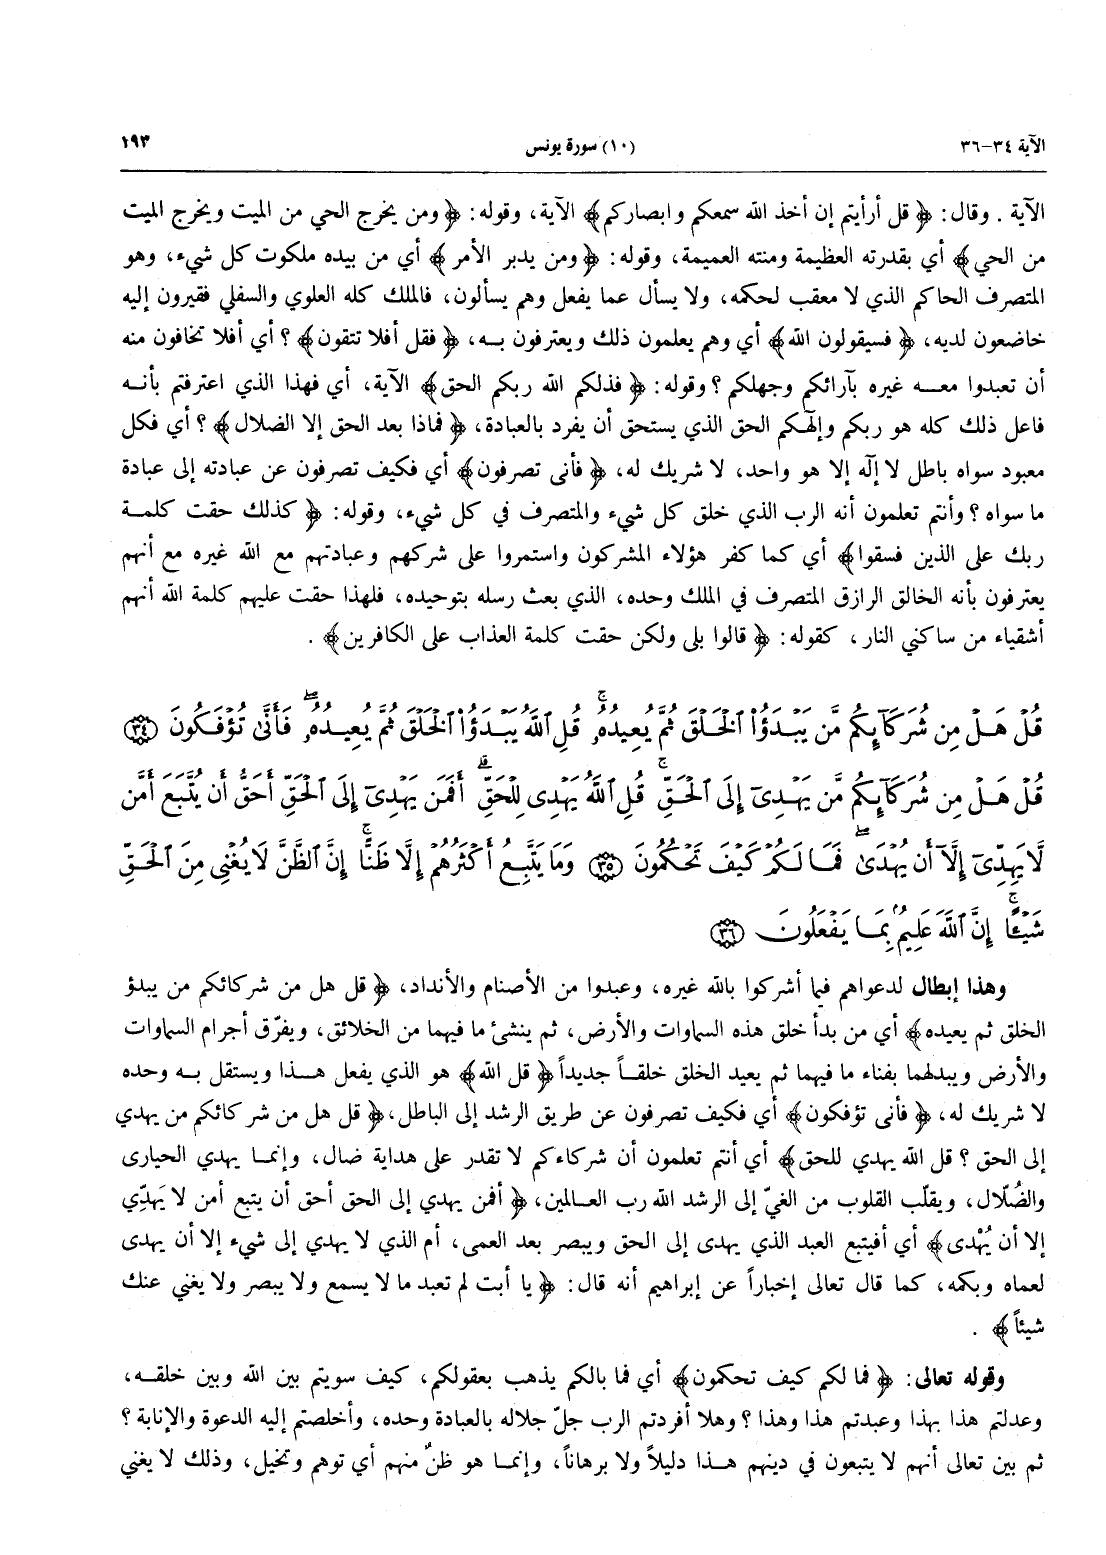 الآية ٣٤-٣٦ (١٠) سورة يونس ١٩٣
الآية . وقال: ﴿ قل أرأيتم إن أخذ الله سمعكم وابصاركم﴾ الآية، وقوله: ﴿ ومن يخرج الحي من الميت ويخرج الميت
من الحي﴾ أي بقدرته العظيمة ومنته العميمة، وقوله: ﴿ومن يدبر الأمر﴾ أي من بيده ملكوت كل شيء، وهو
المتصرف الحاكم الذي لا معقب لحكمه، ولا يسأل عما يفعل وهم يسألون، فالملك كله العلوي والسفلي فقيرون إليه
خاضعون لديه، ﴿ فسيقولون الله﴾ أي وهم يعلمون ذلك ويعترفون به، ﴿ فقل أفلا تتقون﴾ ؟ أي أفلا تخافون منه
أن تعبدوا معه غيره بآرائكم وجهلكم ؟ وقوله: ﴿ فذلكم الله ربكم الحق﴾ الآية، أي فهذا الذي اعترفتم بأنه
فاعل ذلك كله هو ربكم وإلٓهكم الحق الذي يستحق أن يفرد بالعبادة، ﴿ فماذا بعد الحق إلا الضلال﴾ ؟ أي فكل
معبود سواه باطل لا إلٓه إلا هو واحد، لا شريك له، ﴿ فأنى تصرفون﴾ أي فكيف تصرفون عن عبادته إلى عبادة
ما سواه ؟ وأنتم تعلمون أنه الرب الذي خلق كل شيء والمتصرف في كل شيء، وقوله: ﴿ كذلك حقت كلمة
ربك على الذين فسقوا﴾ أي كما كفر هؤلاء المشركون واستمروا على شركهم وعبادتهم مع الله غيره مع أنهم
يعترفون بأنه الخالق الرازق المتصرف في الملك وحده، الذي بعث رسله بتوحيده، فلهذا حقت عليهم كلمة الله أنهم
أشقياء من ساكني النار، كقوله: ﴿ قالوا بلى ولكن حقت كلمة العذاب على الكافرين﴾ .
قُلْ هَلْ مِن شُرَكَآئِكُم مَّن يَبْدَؤُا۟ ٱلْخَلْقَ ثُمَّ يُعِيدُهُۥ ۚ قُلِ ٱللَّهُ يَبْدَؤُا۟ ٱلْخَلْقَ ثُمَّ يُعِيدُهُۥ ۖ فَأَنَّىٰ تُؤْفَكُونَ ﴿٣٤﴾
قُلْ هَلْ مِن شُرَكَآئِكُم مَّن يَهْدِىٓ إِلَى ٱلْحَقِّ ۚ قُلِ ٱللَّهُ يَهْدِى لِلْحَقِّ ۗ أَفَمَن يَهْدِىٓ إِلَى ٱلْحَقِّ أَحَقُّ أَن يُتَّبَعَ أَمَّن
لَّا يَهِدِّىٓ إِلَّآ أَن يُهْدَىٰ ۖ فَمَا لَكُمْ كَيْفَ تَحْكُمُونَ ﴿٣٥﴾ وَمَا يَتَّبِعُ أَكْثَرُهُمْ إِلَّا ظَنًّا ۚ إِنَّ ٱلظَّنَّ لَا يُغْنِى مِنَ ٱلْحَقِّ
شَيْـًٔا ۚ إِنَّ ٱللَّهَ عَلِيمٌۢ بِمَا يَفْعَلُونَ ﴿٣٦﴾
وهذا إبطال لدعواهم فيما أشركوا بالله غيره، وعبدوا من الأصنام والأنداد، ﴿ قل هل من شركائكم من يبدؤ
الخلق ثم يعيده﴾ أي من بدأ خلق هذه السماوات والأرض، ثم ينشئ ما فيهما من الخلائق، ويفرّق أجرام السماوات
والأرض ويبدلهما بفناء ما فيهما ثم يعيد الخلق خلقاً جديداً ﴿ قل الله﴾ هو الذي يفعل هذا ويستقل به وحده
لا شريك له، ﴿ فأنى تؤفكون﴾ أي فكيف تصرفون عن طريق الرشد إلى الباطل، ﴿ قل هل من شركائكم من يهدي
إلى الحق ؟ قل الله يهدي للحق﴾ أي أنتم تعلمون أن شركاءكم لا تقدر على هداية ضال، وإنما يهدي الحيارى
والضُلّال، ويقلّب القلوب من الغيّ إلى الرشد الله رب العالمين، ﴿ أفمن يهدي إلى الحق أحق أن يتبع أمن لا يَهدِّي
إلا أن يُهْدى﴾ أي أفيتبع العبد الذي يهدى إلى الحق ويبصر بعد العمى، أم الذي لا يهدي إلى شيء إلا أن يهدى
لعماه وبكمه، كما قال تعالى إخباراً عن إبراهيم أنه قال: ﴿ يا أبت لم تعبد ما لا يسمع ولا يبصر ولا يغني عنك
شيئاً﴾ .
وقوله تعالى: ﴿ فما لكم كيف تحكمون﴾ أي فما بالكم يذهب بعقولكم، كيف سويتم بين الله وبين خلقه،
وعدلتم هذا بهذا وعبدتم هذا وهذا ؟ وهلا أفردتم الرب جلّ جلاله بالعبادة وحده، وأخلصتم إليه الدعوة والإنابة ؟
ثم بين تعالى أنهم لا يتبعون في دينهم هذا دليلاً ولا برهاناً، وإنما هو ظنٌ منهم أي توهم وتخيل، وذلك لا يغني